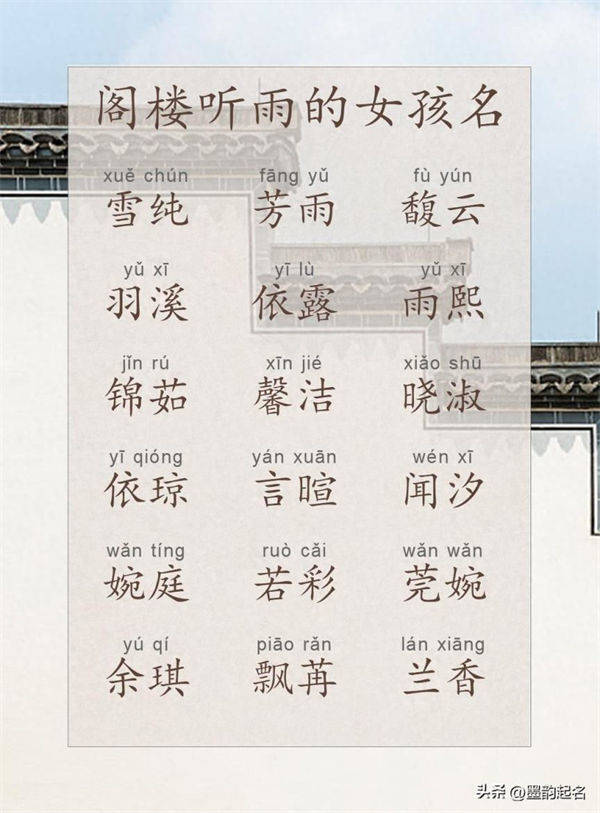 阁楼听雨的女孩名
xuě chún fāng yǔ fù yún
雪纯 芳雨 馥云
yǔ xī yī lù yǔ xī
羽溪 依露 雨熙
jǐn rú xīn jié xiǎo shū
锦茹 馨洁 晓淑
yī qióng yán xuān wén xī
依琼 言暄 闻汐
wǎn tíng ruò cǎi wǎn wǎn
婉庭 若彩 莞婉
yú qí piāo rǎn lán xiāng
余琪 飘苒 兰香
头条 @墨韵起名